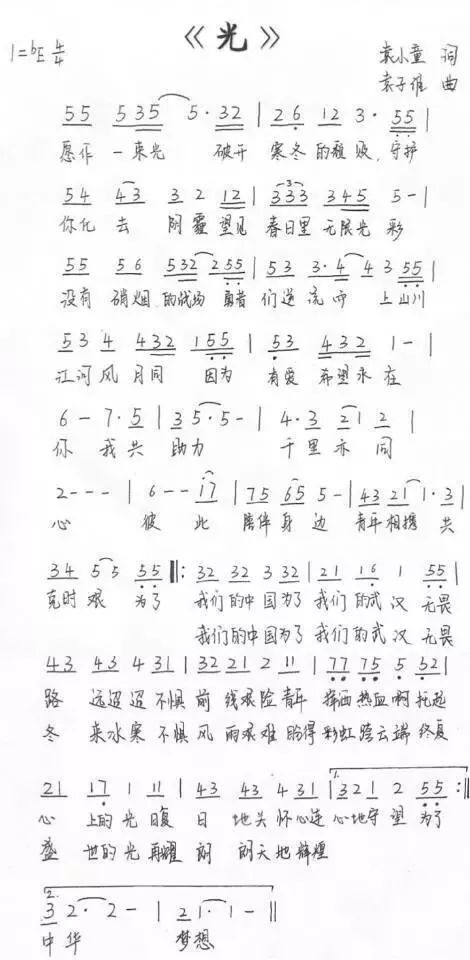 《光》
1=♭E 4/4
袁小童 词
袁子维 曲
55 535 5·32 | 26 12 3·55 |
愿作 一束光 破开 寒冬的 守护
54 43 3 2 12 | 333 345 5- |
你化去 阴霾 望见 春日里 无限光彩
55 56 532 255 | 53 3·4 4 3 55 |
没有 硝烟 的战场 勇者 们逆流而上 山川
53 4 432 155 | 53 432 1- |
江河 风月同 因为 有爱 希望永在
6- 7·5 | 3 5·5- | 4·3 21 2 |
你 我共 助力 千里亦同
2--- | 6--17 | 75 65 5- | 43 21 1·3 |
心 彼此 陪伴身边 青年相携 共
34 5 5 55 ‖: 32 32 3 32 | 21 16 1 55 |
克时艰 为了 我们的中国为了 我们的武汉 无畏
我们的中国为了 我们的武汉 无畏
43 43 4 31 | 32 21 2 11 | 77 75 5 52 |
路 远迢迢 不惧 前 线艰险 青年 挥洒 热血啊 托起
冬 来水寒 不惧 风 雨艰难 盼得 彩虹 跨云端 终复
21 17 1 11 | 43 43 4 31 | 1. 321 2 55 :‖
心 上的光 日复 日 地头 怀心连 心地守望 为了
盛 世的光 再耀 朗 朗天地 辉煌
2. 3 2· 2- | 21· 1- ‖
中华 梦想